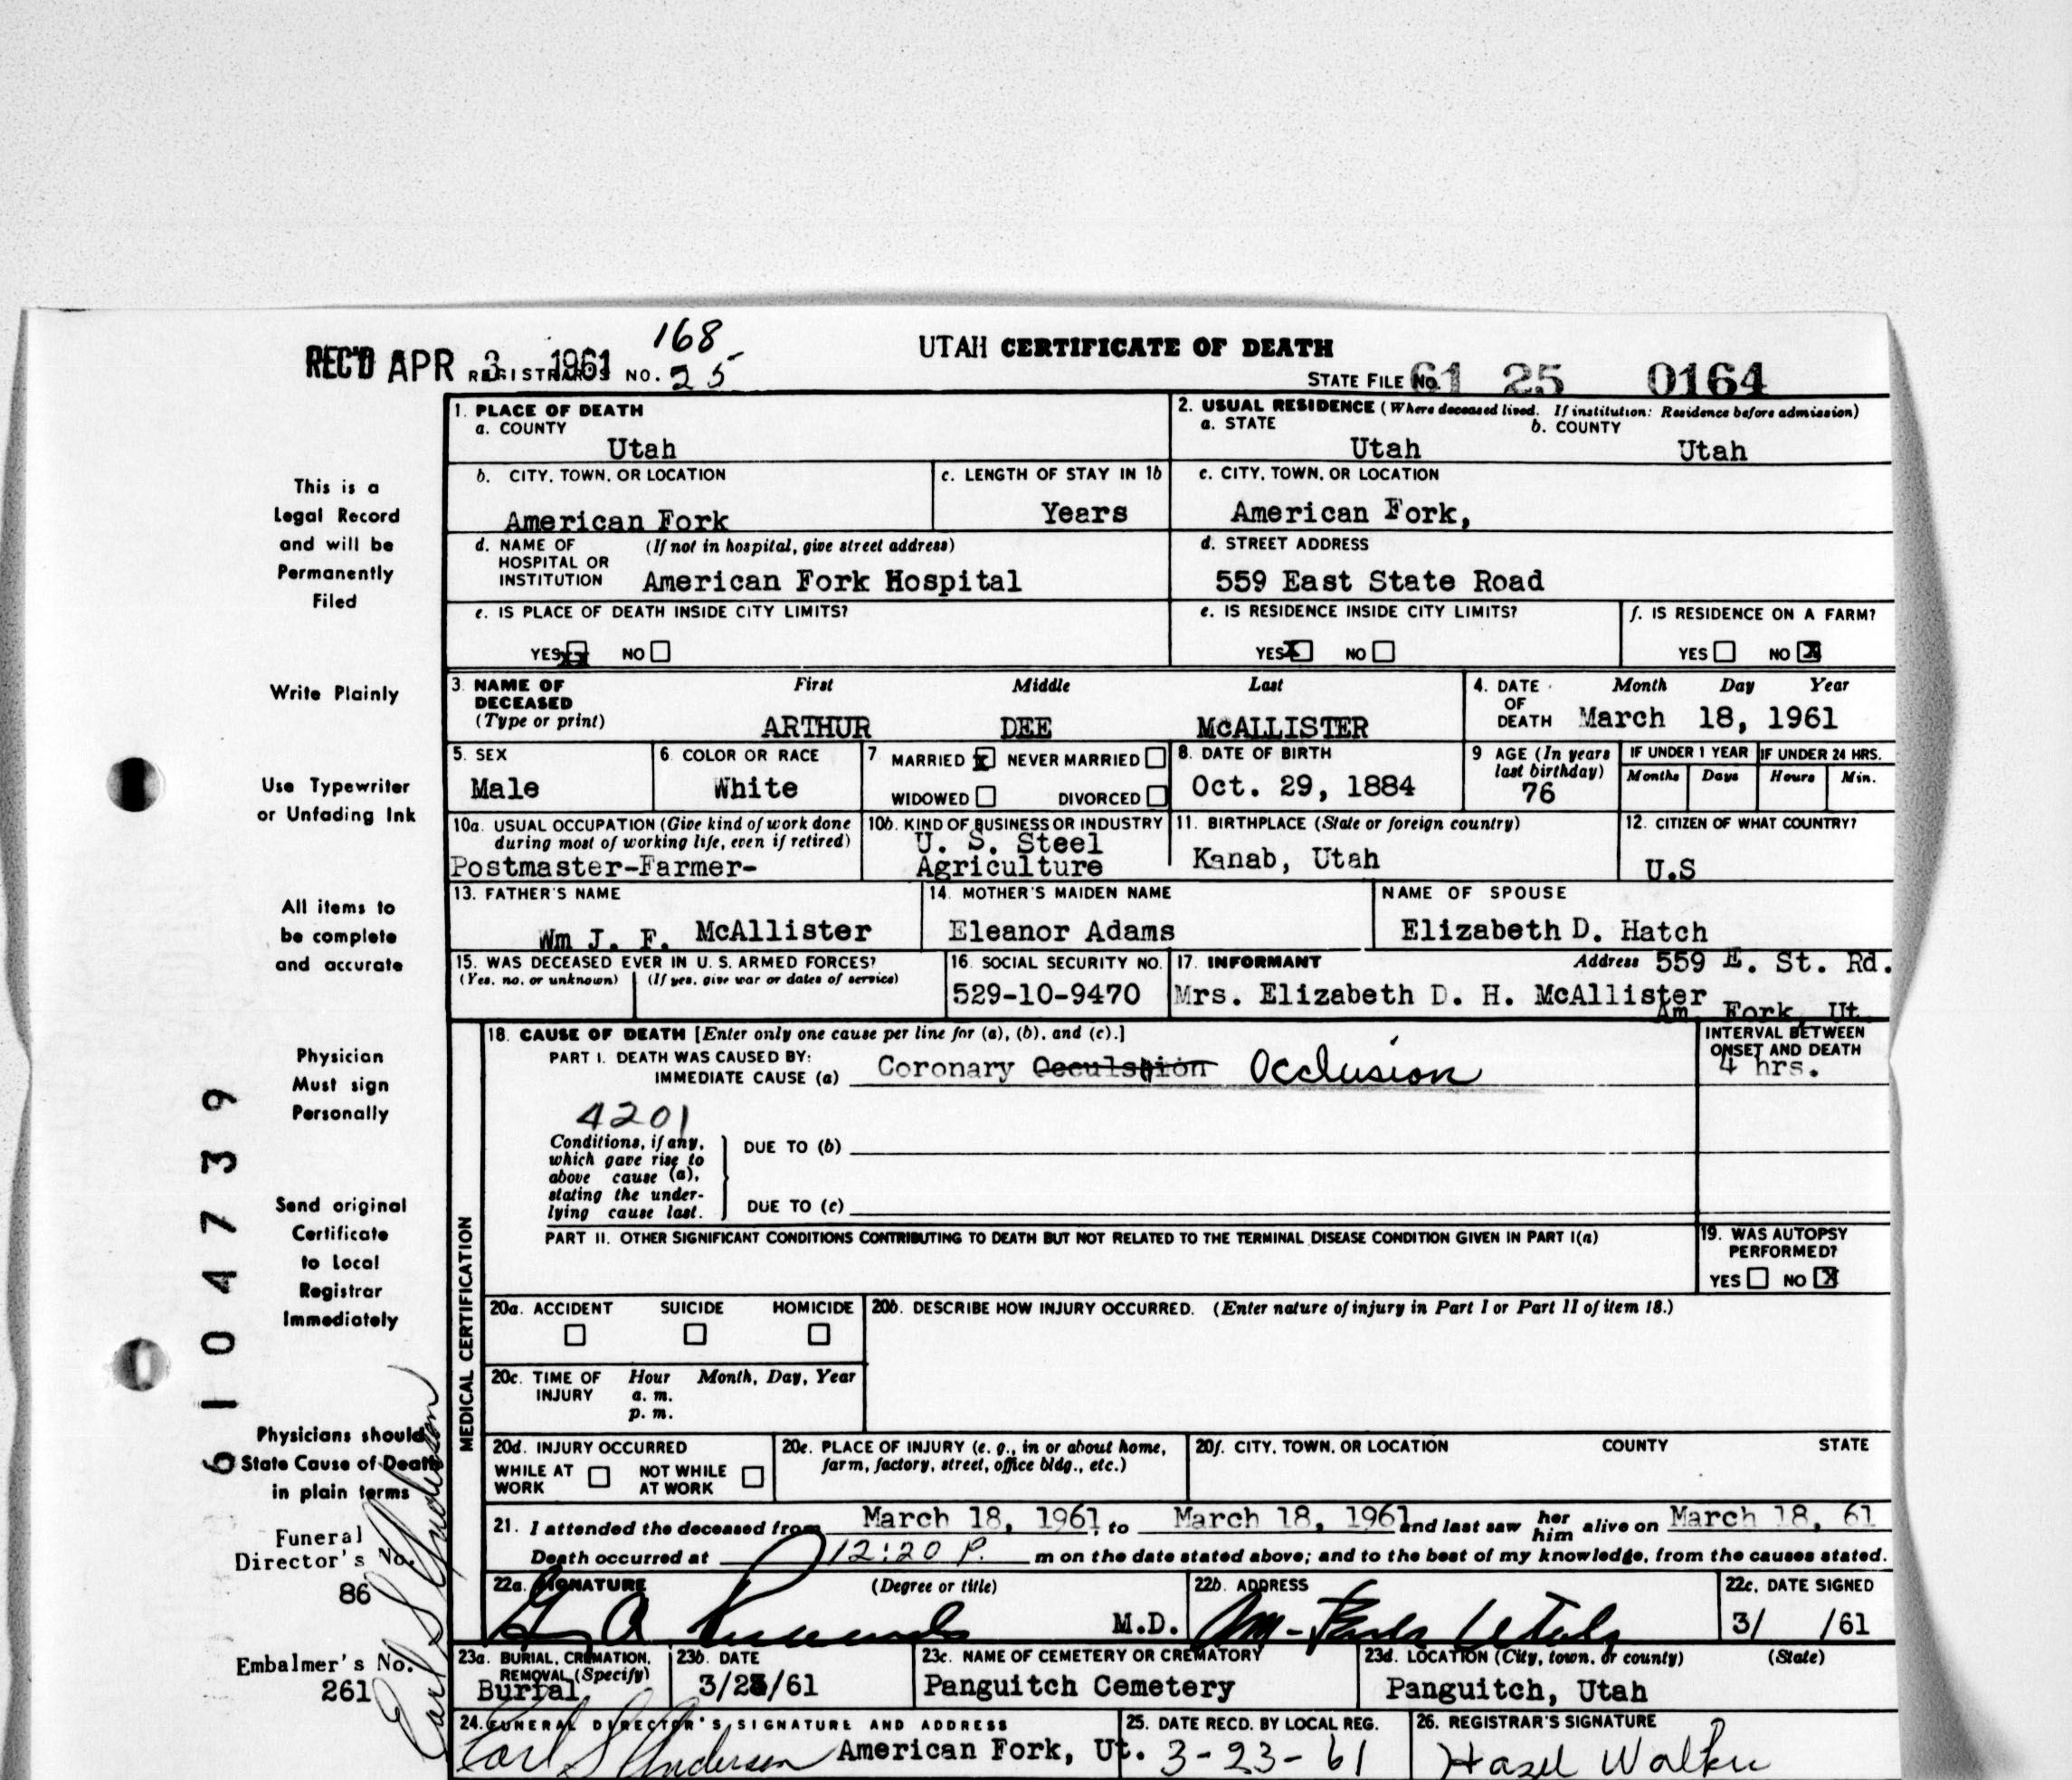 REC'D APR 3 1961
168
REGISTRAR'S NO. 25
UTAH CERTIFICATE OF DEATH
STATE FILE No. 61 25 0164
1. PLACE OF DEATH
a. COUNTY
Utah
2. USUAL RESIDENCE (Where deceased lived. If institution: Residence before admission)
a. STATE
Utah
b. COUNTY
Utah
b. CITY, TOWN, OR LOCATION
American Fork
c. LENGTH OF STAY IN 1b
Years
c. CITY, TOWN, OR LOCATION
American Fork,
d. NAME OF HOSPITAL OR INSTITUTION
(If not in hospital, give street address)
American Fork Hospital
d. STREET ADDRESS
559 East State Road
e. IS PLACE OF DEATH INSIDE CITY LIMITS?
YES xx NO
e. IS RESIDENCE INSIDE CITY LIMITS?
YES X NO
f. IS RESIDENCE ON A FARM?
YES NO X
3. NAME OF DECEASED
(Type or print)
First Middle Last
ARTHUR DEE McALLISTER
4. DATE OF DEATH
Month Day Year
March 18, 1961
5. SEX
Male
6. COLOR OR RACE
White
7 MARRIED x NEVER MARRIED
WIDOWED DIVORCED
8. DATE OF BIRTH
Oct. 29, 1884
9 AGE (In years last birthday)
76
IF UNDER 1 YEAR
Months Days
IF UNDER 24 HRS.
Hours Min.
10a. USUAL OCCUPATION (Give kind of work done
during most of working life, even if retired)
Postmaster-Farmer-
10b. KIND OF BUSINESS OR INDUSTRY
U. S. Steel
Agriculture
11. BIRTHPLACE (State or foreign country)
Kanab, Utah
12. CITIZEN OF WHAT COUNTRY?
U.S
13. FATHER'S NAME
Wm J. F. McAllister
14. MOTHER'S MAIDEN NAME
Eleanor Adams
NAME OF SPOUSE
Elizabeth D. Hatch
15. WAS DECEASED EVER IN U. S. ARMED FORCES?
(Yes, no, or unknown) (If yes, give war or dates of service)
16. SOCIAL SECURITY NO.
529-10-9470
17. INFORMANT Address 559 E. St. Rd.
Mrs. Elizabeth D. H. McAllister
Am Fork, Ut
18. CAUSE OF DEATH [Enter only one cause per line for (a), (b), and (c).]
PART I. DEATH WAS CAUSED BY:
IMMEDIATE CAUSE (a) Coronary Occlusion
INTERVAL BETWEEN
ONSET AND DEATH
4 hrs.
4201
Conditions, if any,
which gave rise to
above cause (a),
stating the under-
lying cause last.
DUE TO (b)
DUE TO (c)
PART II. OTHER SIGNIFICANT CONDITIONS CONTRIBUTING TO DEATH BUT NOT RELATED TO THE TERMINAL DISEASE CONDITION GIVEN IN PART I(a)
19. WAS AUTOPSY
PERFORMED?
YES NO X
MEDICAL CERTIFICATION
20a. ACCIDENT SUICIDE HOMICIDE
20b. DESCRIBE HOW INJURY OCCURRED. (Enter nature of injury in Part I or Part II of item 18.)
20c. TIME OF INJURY
Hour Month, Day, Year
a. m.
p. m.
20d. INJURY OCCURRED
WHILE AT WORK NOT WHILE AT WORK
20e. PLACE OF INJURY (e. g., in or about home,
farm, factory, street, office bldg., etc.)
20f. CITY, TOWN, OR LOCATION COUNTY STATE
21. I attended the deceased from March 18, 1961 to March 18, 1961 and last saw her him alive on March 18, 61
Death occurred at 12:20 P. m on the date stated above; and to the best of my knowledge, from the causes stated.
22a. SIGNATURE (Degree or title)
M.D.
22b. ADDRESS
Am- Fork Utah
22c. DATE SIGNED
3/ /61
23a. BURIAL, CREMATION,
REMOVAL (Specify)
Burial
23b. DATE
3/23/61
23c. NAME OF CEMETERY OR CREMATORY
Panguitch Cemetery
23d. LOCATION (City, town, or county) (State)
Panguitch, Utah
24. FUNERAL DIRECTOR'S SIGNATURE AND ADDRESS
Earl S Anderson American Fork, Ut.
25. DATE RECD. BY LOCAL REG.
3-23-61
26. REGISTRAR'S SIGNATURE
Hazel Walker
This is a
Legal Record
and will be
Permanently
Filed
Write Plainly
Use Typewriter
or Unfading Ink
All items to
be complete
and accurate
Physician
Must sign
Personally
Send original
Certificate
to Local
Registrar
Immediately
Physicians should
State Cause of Death
in plain terms
Funeral
Director's No.
86
Embalmer's No.
261
Earl S Anderson
6104739